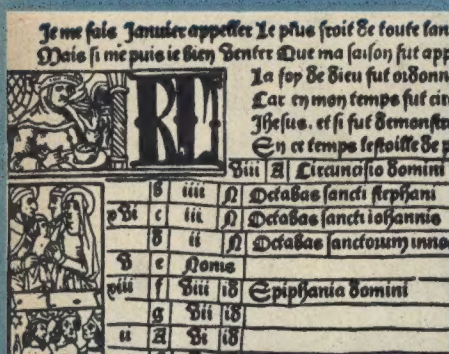 Je me fais Januier appeller Le plus froit de toute
Mais si me puis ie bien venter Que ma saison fut
La foy de dieu fut ordonn
Car en mon temps fut cir
Jhesus. et si fut demonstra
En ce temps lestoille de
KL
viii A Circuncisio domini
b iiii N Octabas sancti stephani
xvi c iii N Octabas sancti iohannis
d ii N Octabas sanctorum inno
v e Nonis
xiii f viii id Epiphania domini
g vii id
ii A vi id